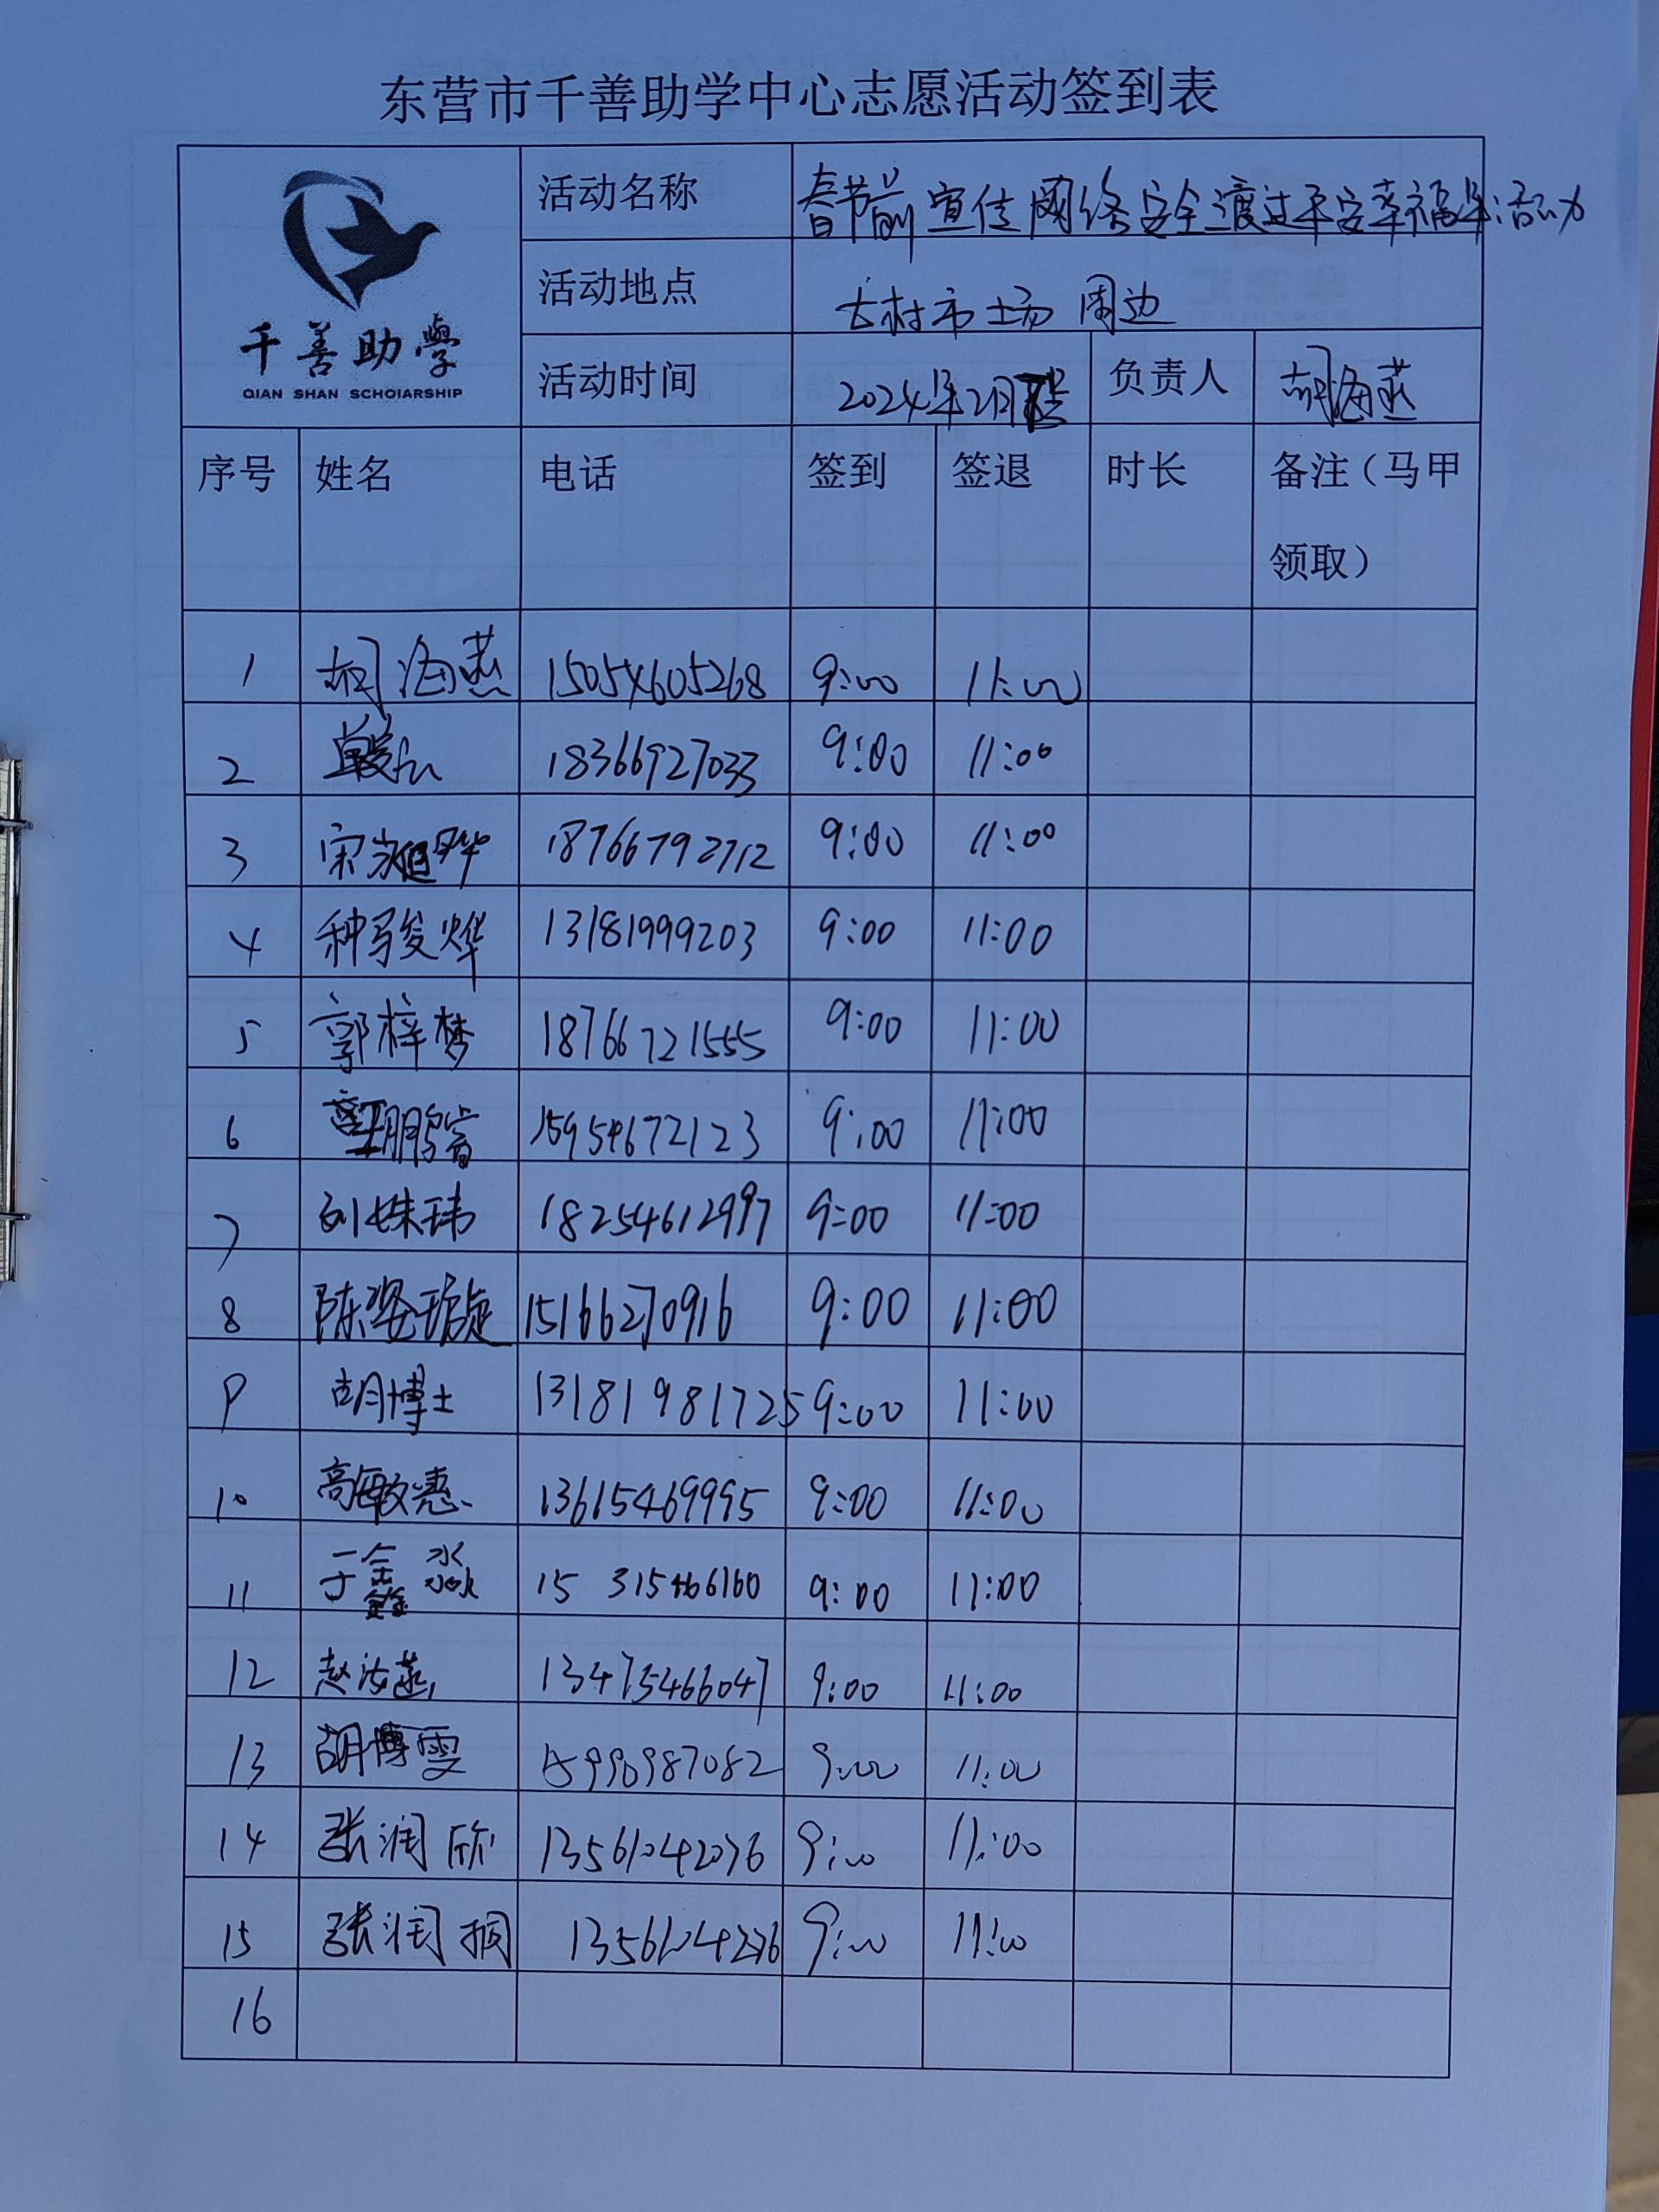 东营市千善助学中心志愿活动签到表
千善助學
QIAN SHAN SCHOlARSHIP
活动名称 春节前宣传网络安全渡过平安幸福年活动
活动地点 市场周边
活动时间 2024年2月 负责人 胡海燕
序号 姓名 电话 签到 签退 时长 备注（马甲领取）
1 胡海燕 15054605268 9:00 11:00
2 18366927033 9:00 11:00
3 宋 18766792712 9:00 11:00
4 种骏烨 13181999203 9:00 11:00
5 郭梓梦 18766721555 9:00 11:00
6 15954672123 9:00 11:00
7 刘姝玮 18254612997 9:00 11:00
8 陈姿璇 15166270916 9:00 11:00
9 胡博士 13181981725 9:00 11:00
10 高敏惠 13615469995 9:00 11:00
11 于鑫淼 15315466160 9:00 11:00
12 赵海燕 13475466047 9:00 11:00
13 胡博雯 9:00 11:00
14 张润欣 13561042076 9:00 11:00
15 张润桐 9:00 11:00
16